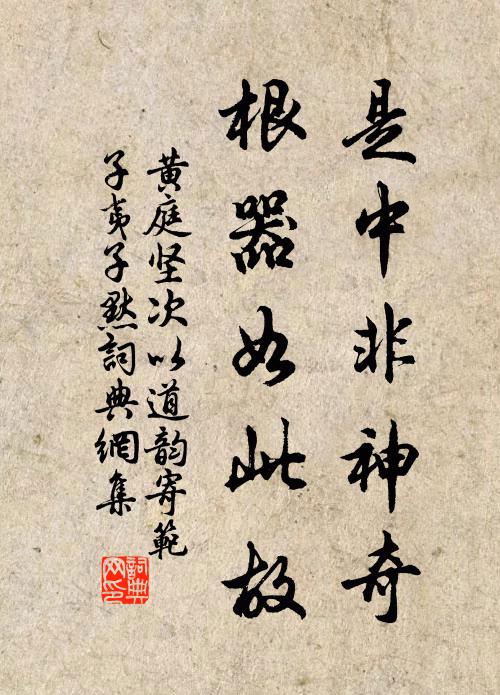 是中非神奇
根器如此故
黄庭坚次以道韵寄範
子夷子默詞典網集
詞典
网印